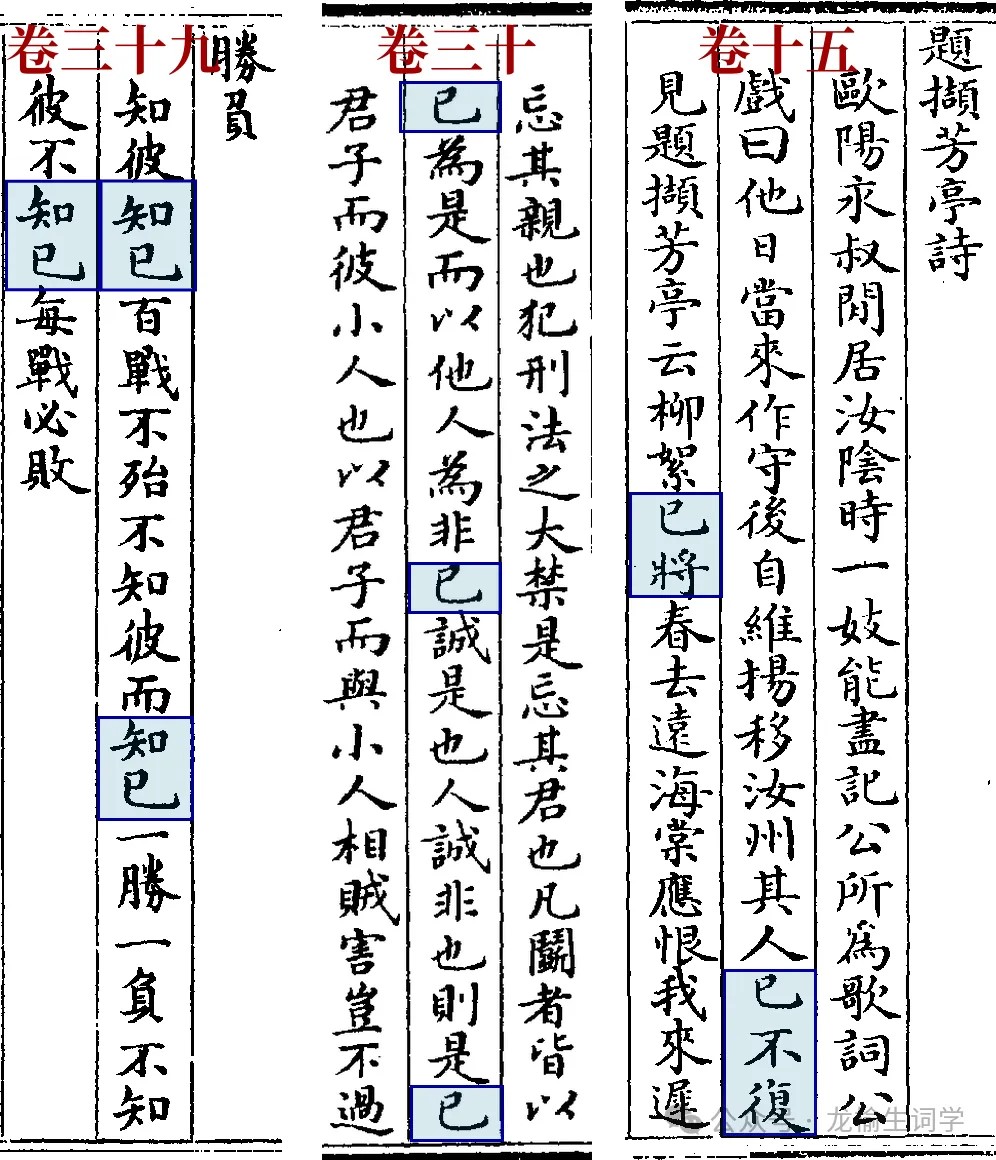 卷十五
題擷芳亭詩
歐陽永叔閒居汝陰時一妓能盡記公所爲歌詞公
戲曰他日當來作守後自維揚移汝州其人已不復
見題擷芳亭云柳絮已將春去遠海棠應恨我來遲
卷三十
忘其親也犯刑法之大禁是忘其君也凡鬭者皆以
已為是而以他人為非已誠是也人誠非也則是已
君子而彼小人也以君子而與小人相賊害豈不過
卷三十九
勝負
知彼知已百戰不殆不知彼而知已一勝一負不知
彼不知已每戰必敗
公众号 · 龙榆生词学